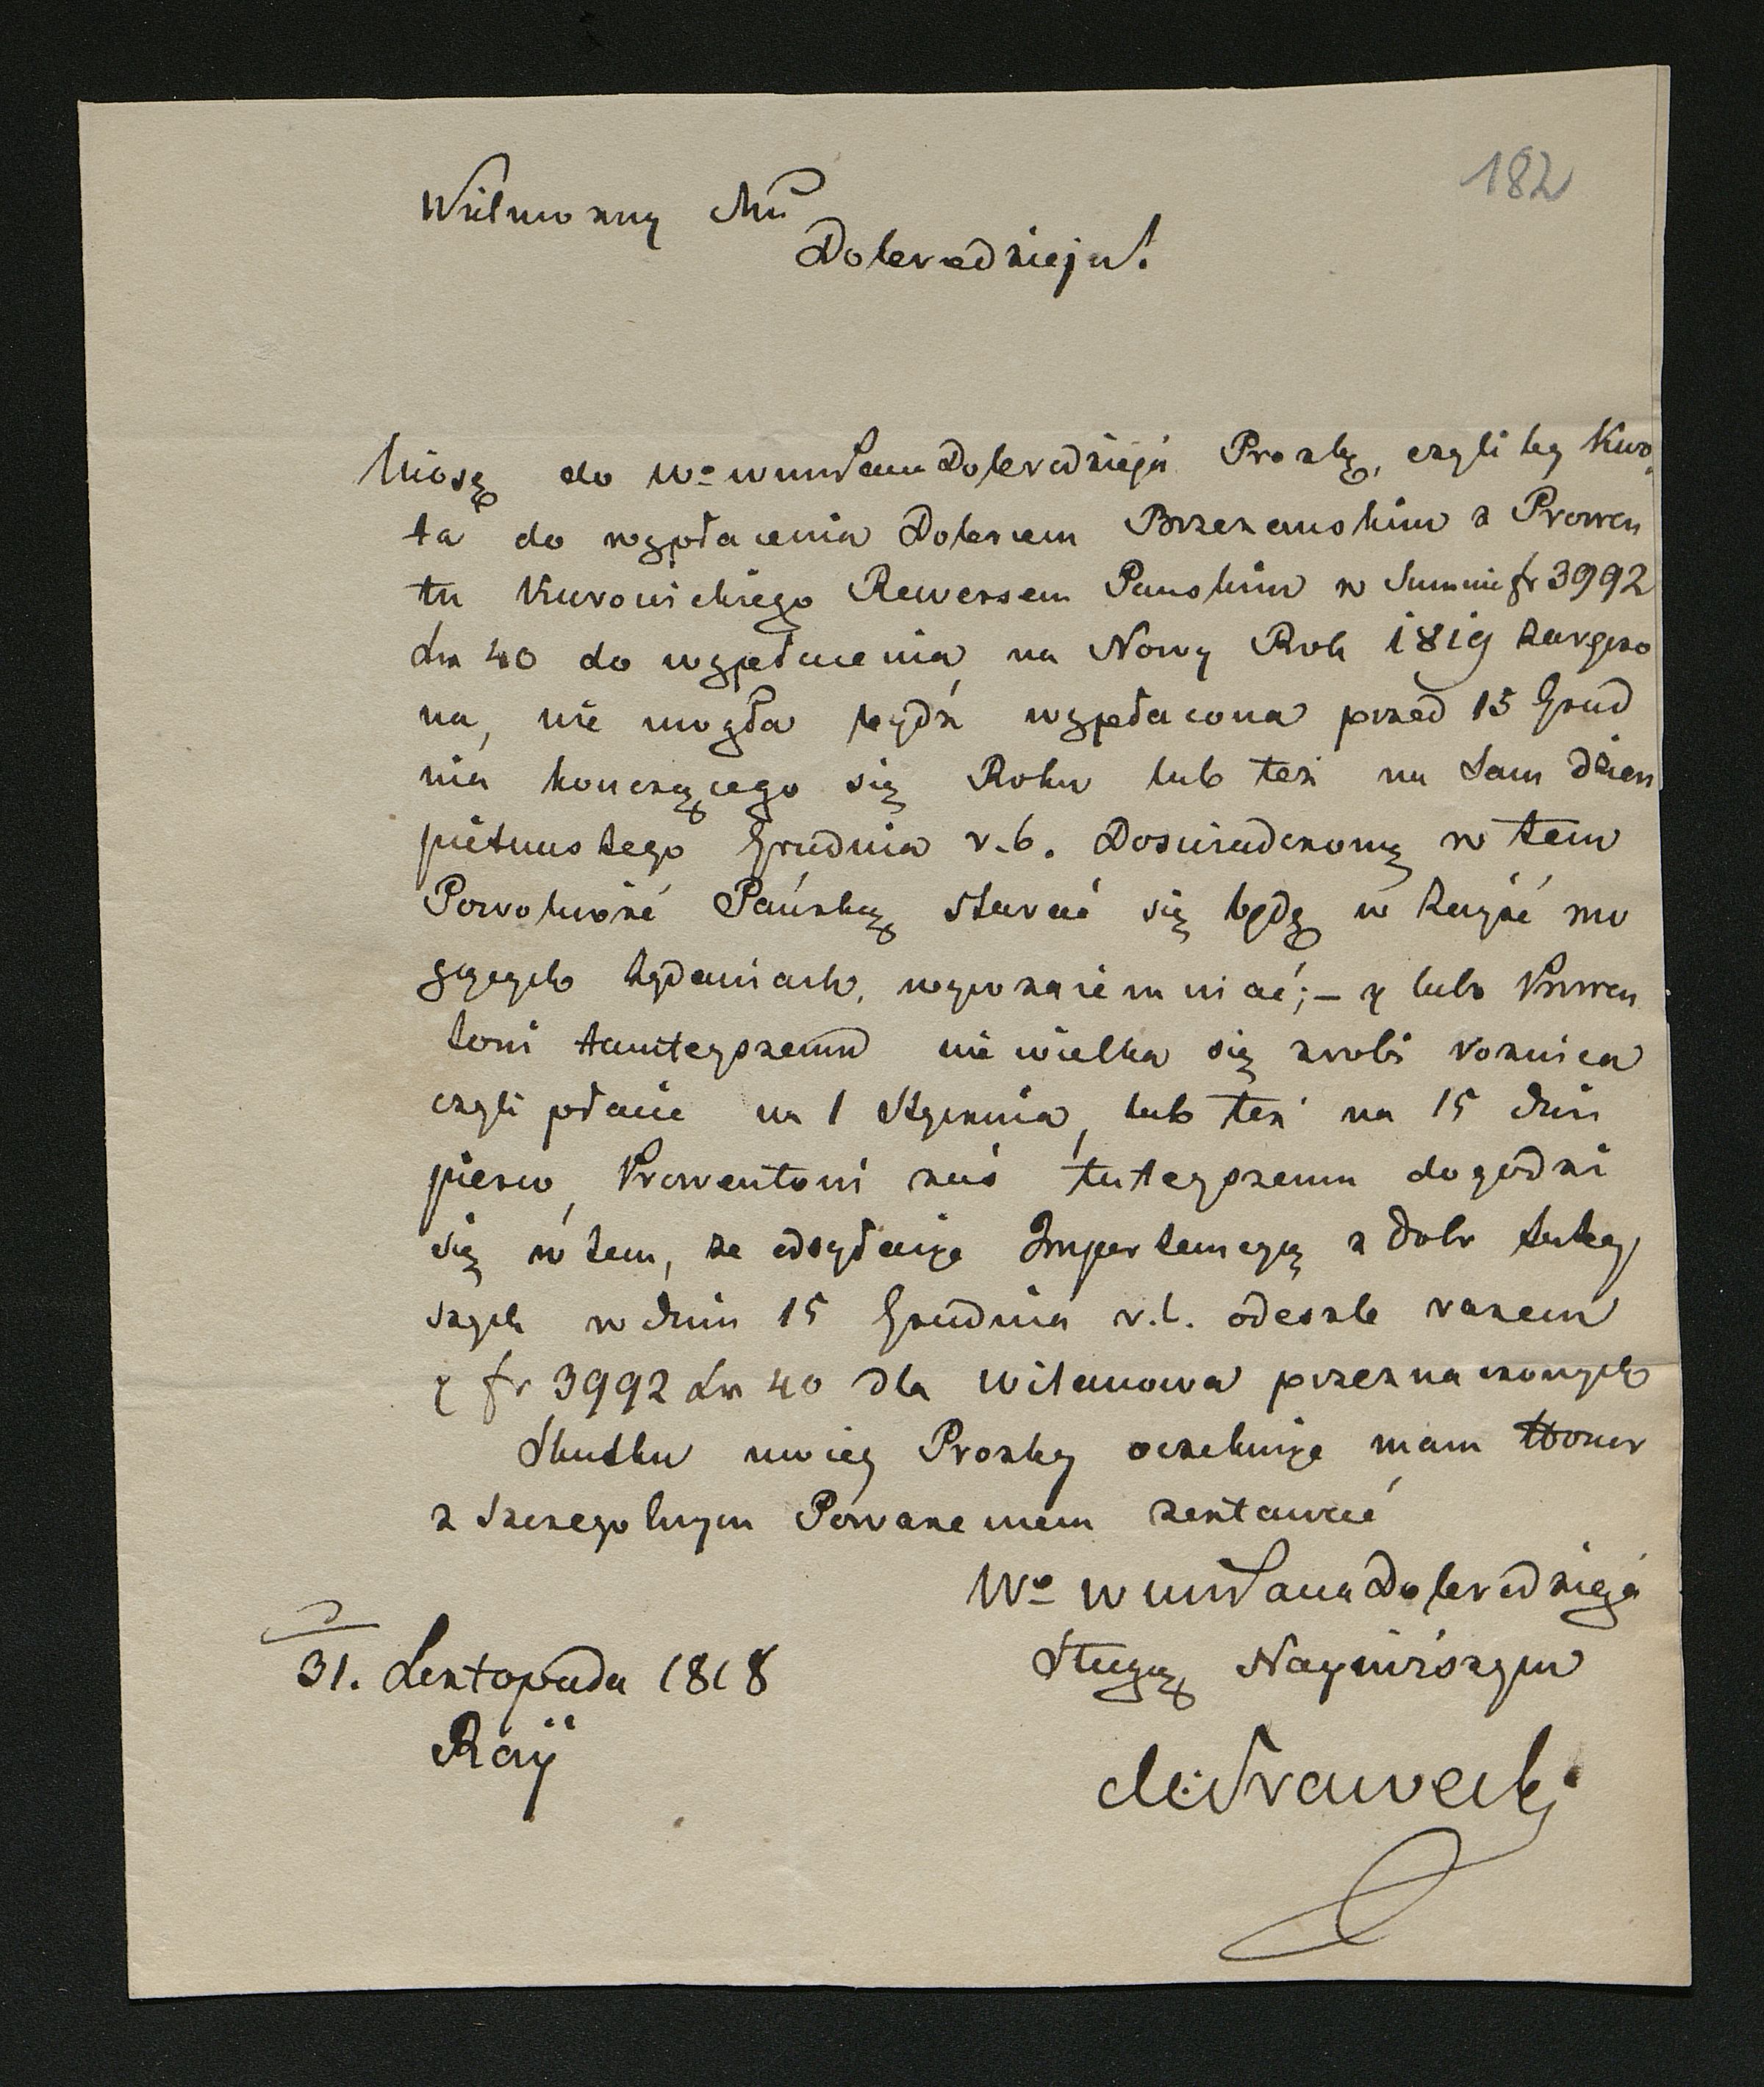 182
Wielmożny Mci
Dobrodzieju!
Wnoszę do Wo WMPana Dobrodzieja Prozbę, czyli by Kwo
ta do wypłacenia Dobrom Brzezanskim z Prowen
tu Kurowickiego Rewersem Panskim w Summie fr 3992
Xr 40 do wypłacenia na Nowy Rok 1819 zaręczo
na, nie mogła bydź wypłacona przed 15 Grud
nia konczącego się Roku lub też na sam dzien
pietnastego Grudnia r. b. Doswiadczoną w tem
Powolność Pańską starać się będę w zayść mo
gących żądaniach, wywzaiemniać; – y lubo Prowen
towi tamteyszemu nie wielka się zrobi roznica
czyli płacić na 1 Stycznia, lub też na 15 dni
pierw, Prowentowi zaś tuteyszemu dogodzi
się w tem, że odsyłaiąc Importancyą z Dobr tutey
szych w dniu 15 Grudnia r. b. odeszle razem
y fr 3992 Xr 40 dla Wilanowa przeznaczonych
Skutku moiey Prozby oczekuiąc mam Honor
z szczegolnym Powazeniem zostawać
Wo WMPana Dobrodzieja
Sługą Nayniższym
31. Listopada 1818
Ray